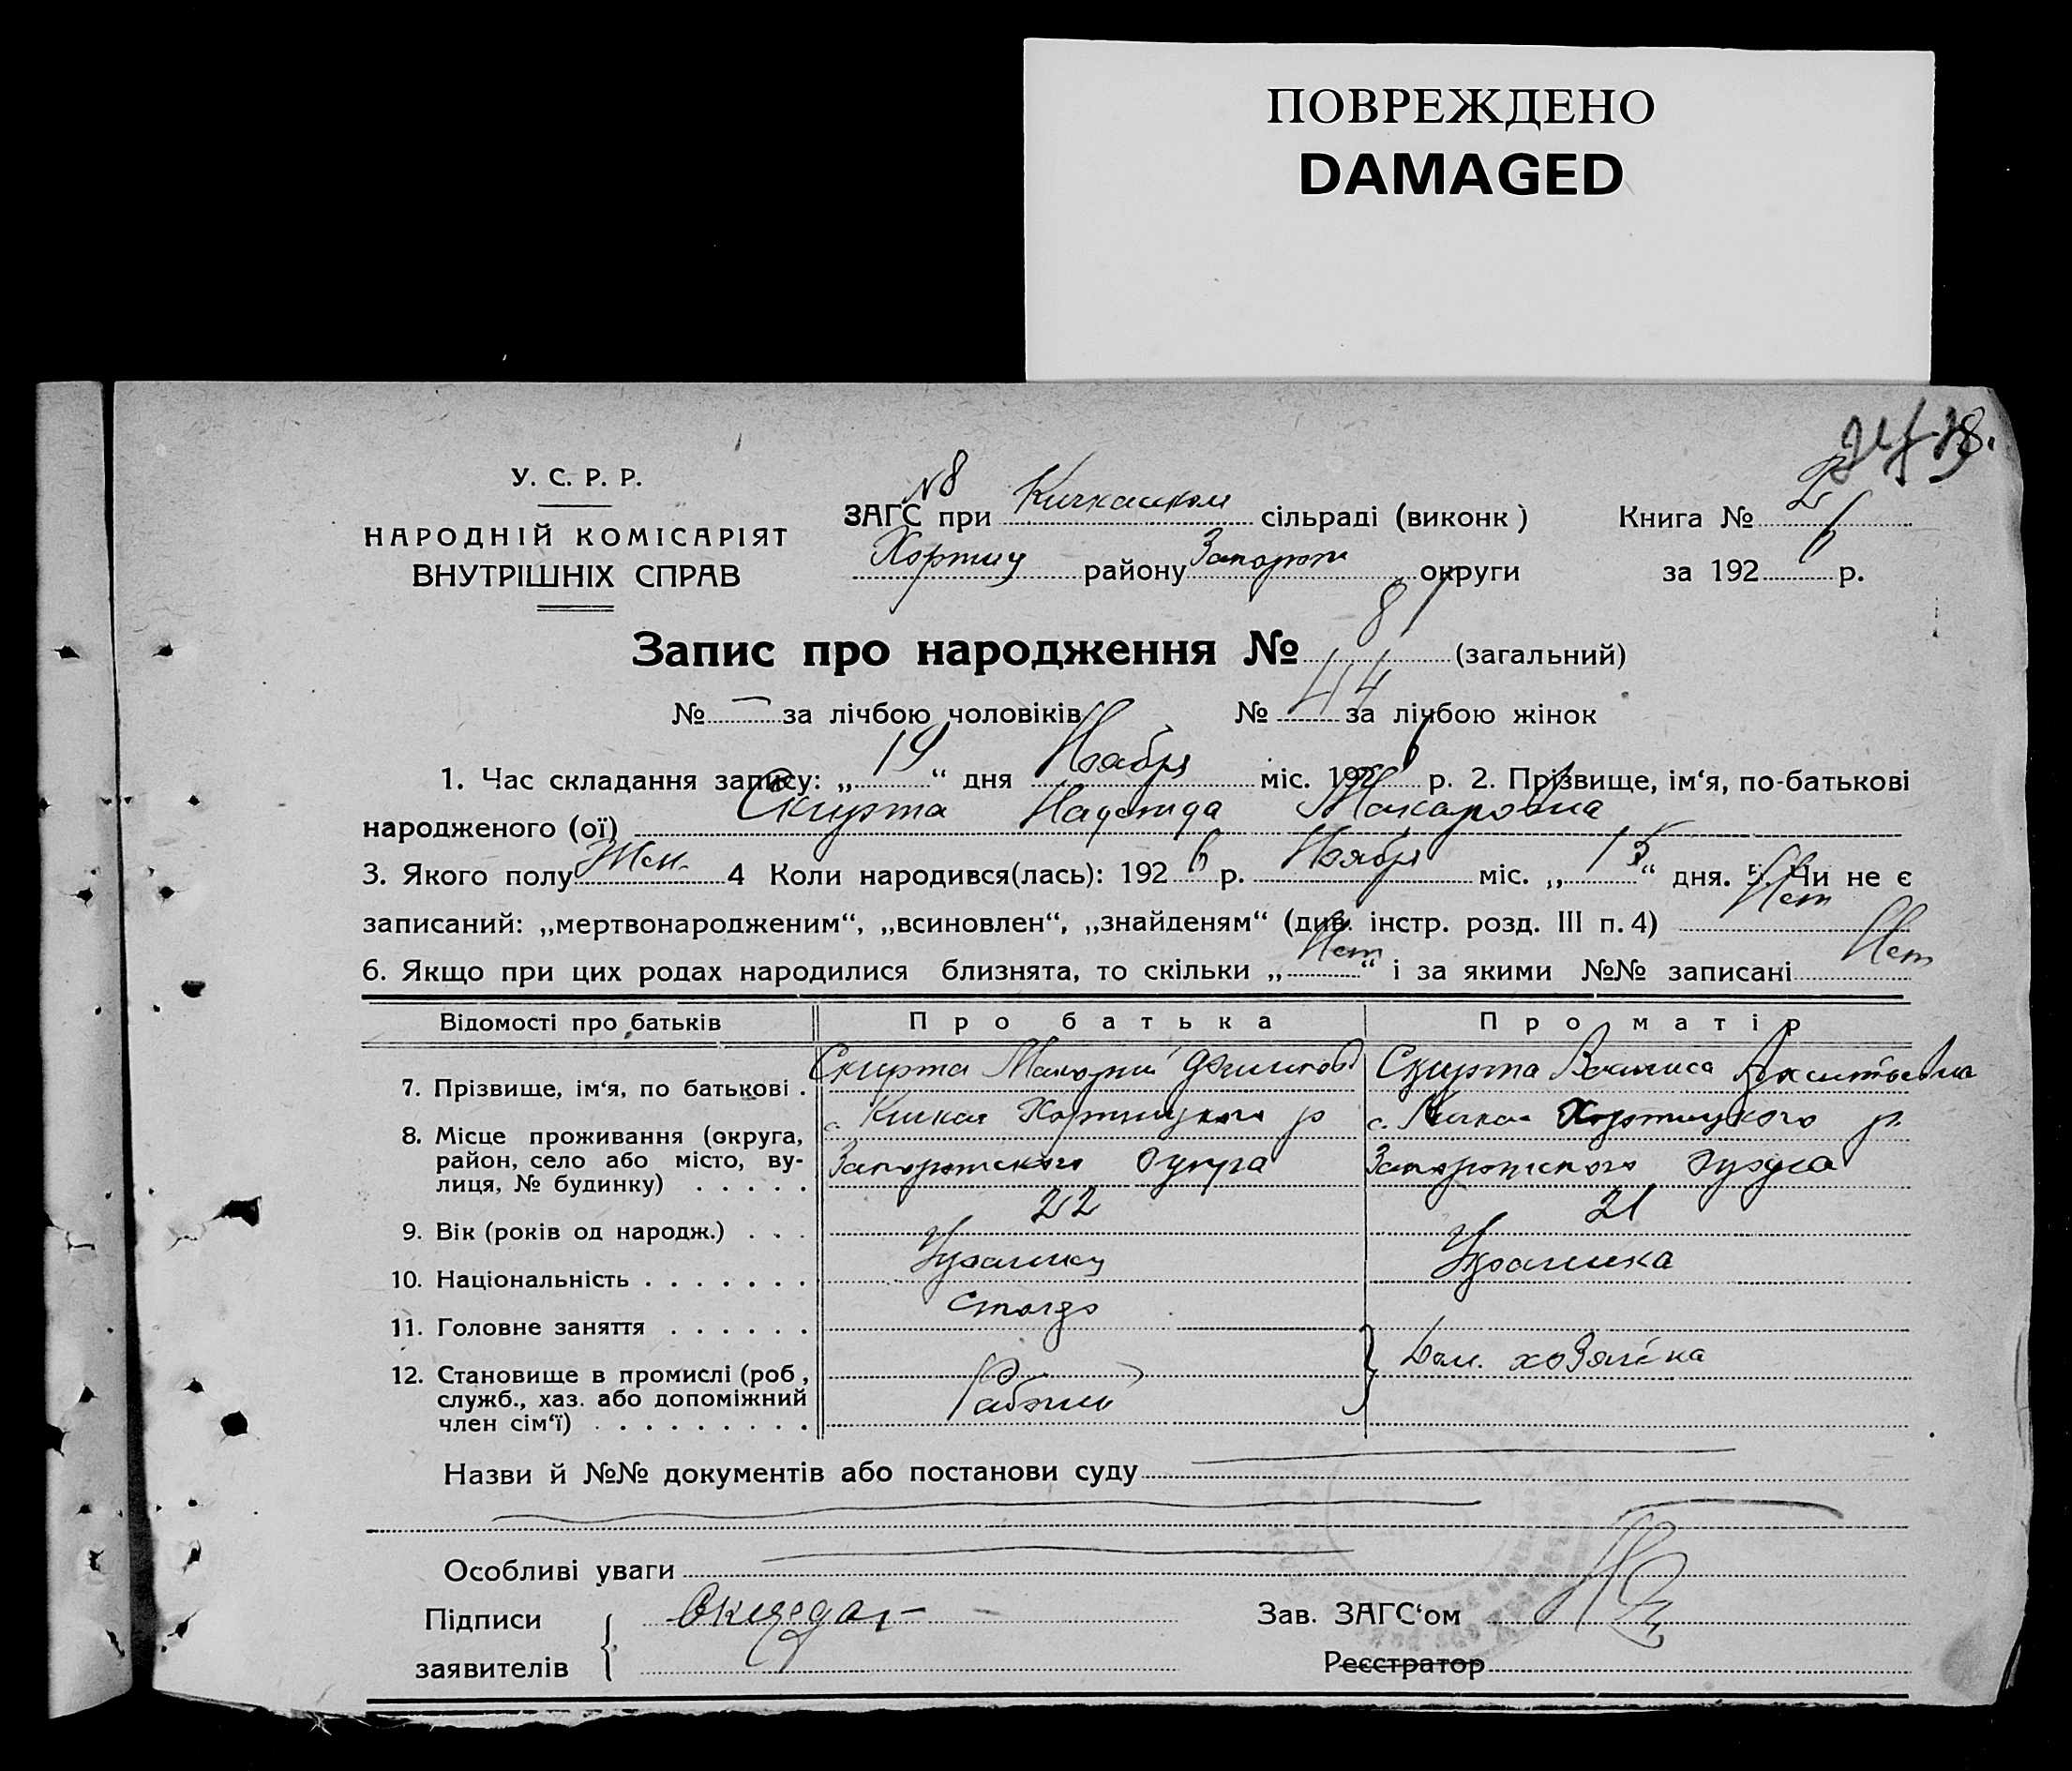 ПОВРЕЖДЕНО
DAMAGED
У. С. Р. Р.
НАРОДНІЙ КОМІСАРІЯТ
ВНУТРІШНІХ СПРАВ
N 8
ЗАГС при Кичкаском сільраді (виконк)
Хортиц району Запорож округи
Книга №
за 192 6 р.
Запис про народження № 81 (загальний)
№ — за лічбою чоловіків № 44 за лічбою жінок
1. Час складання запису: „ 19 “ дня Ноября міс. 192 6 р. 2. Прізвище, ім‘я, по-батькові
народженого (ої) Скирта Надежда Макаровна
3. Якого полу Жен. 4 Коли народився(лась): 192 6 р. Ноября міс. „ 15 “ дня. 5. Чи не є
записаний: „мертвонародженим“, „всиновлен“, „знайденям“ (див. інстр. розд. III п. 4) Нет
6. Якщо при цих родах народилися близнята, то скільки „ Нет “ і за якими №№ записані Нет
Відомості про батьків Про батька Про матір
7. Прізвище, ім‘я, по батькові . Скирта Скирта
8. Місце проживання (округа, район, село або місто, вулиця, № будинку) . . . . .
с. Кичкас Хортицкого р с. Кичкас Хортицкого р.
Запорожского округа Запорожского округа
9. Вік (років од народж.) . . . 22 21
10. Національність . . . . . . . Украинец Украинка
11. Головне заняття . . . . . .
12. Становище в промислі (роб, служб., хаз. або допоміжний член сім‘ї) . . . . . . . . .
Рабочий Дом. хозяйка
Назви й №№ документів або постанови суду
Особливі уваги
Підписи
заявителів
Зав. ЗАГС‘ом
Реєстратор